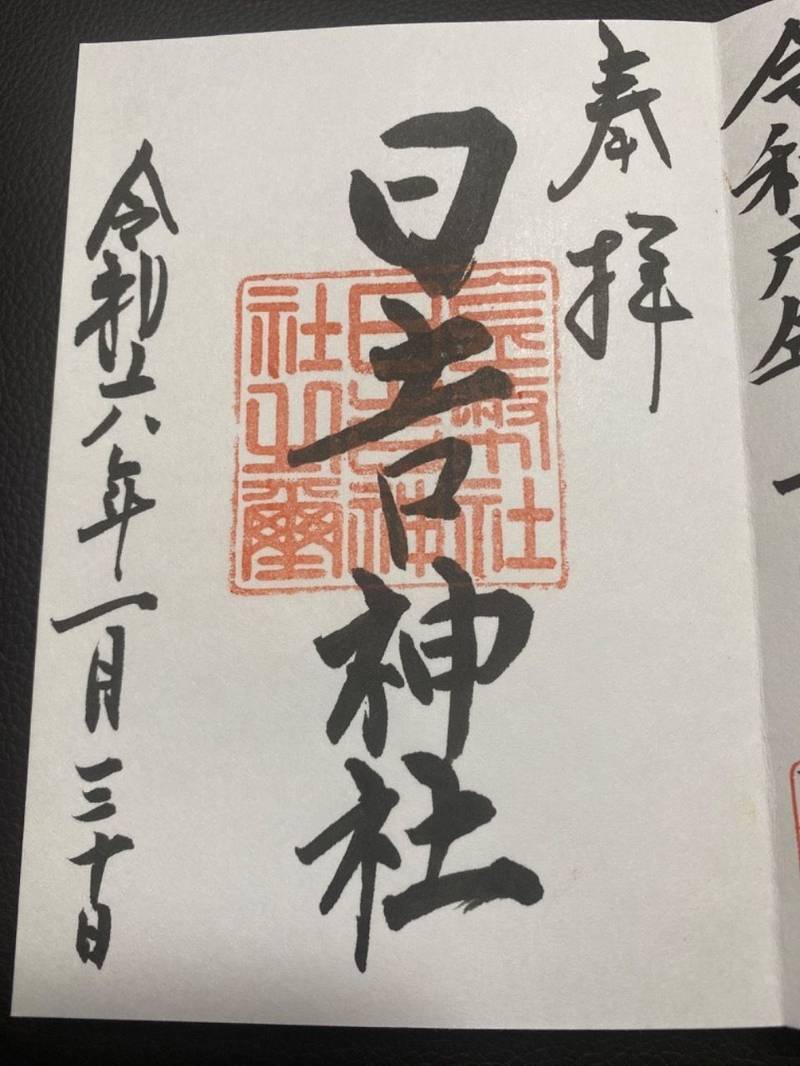 令和六年 一
奉拝
日吉神社
金幣社
日吉神
社之璽
令和六年一月三十日